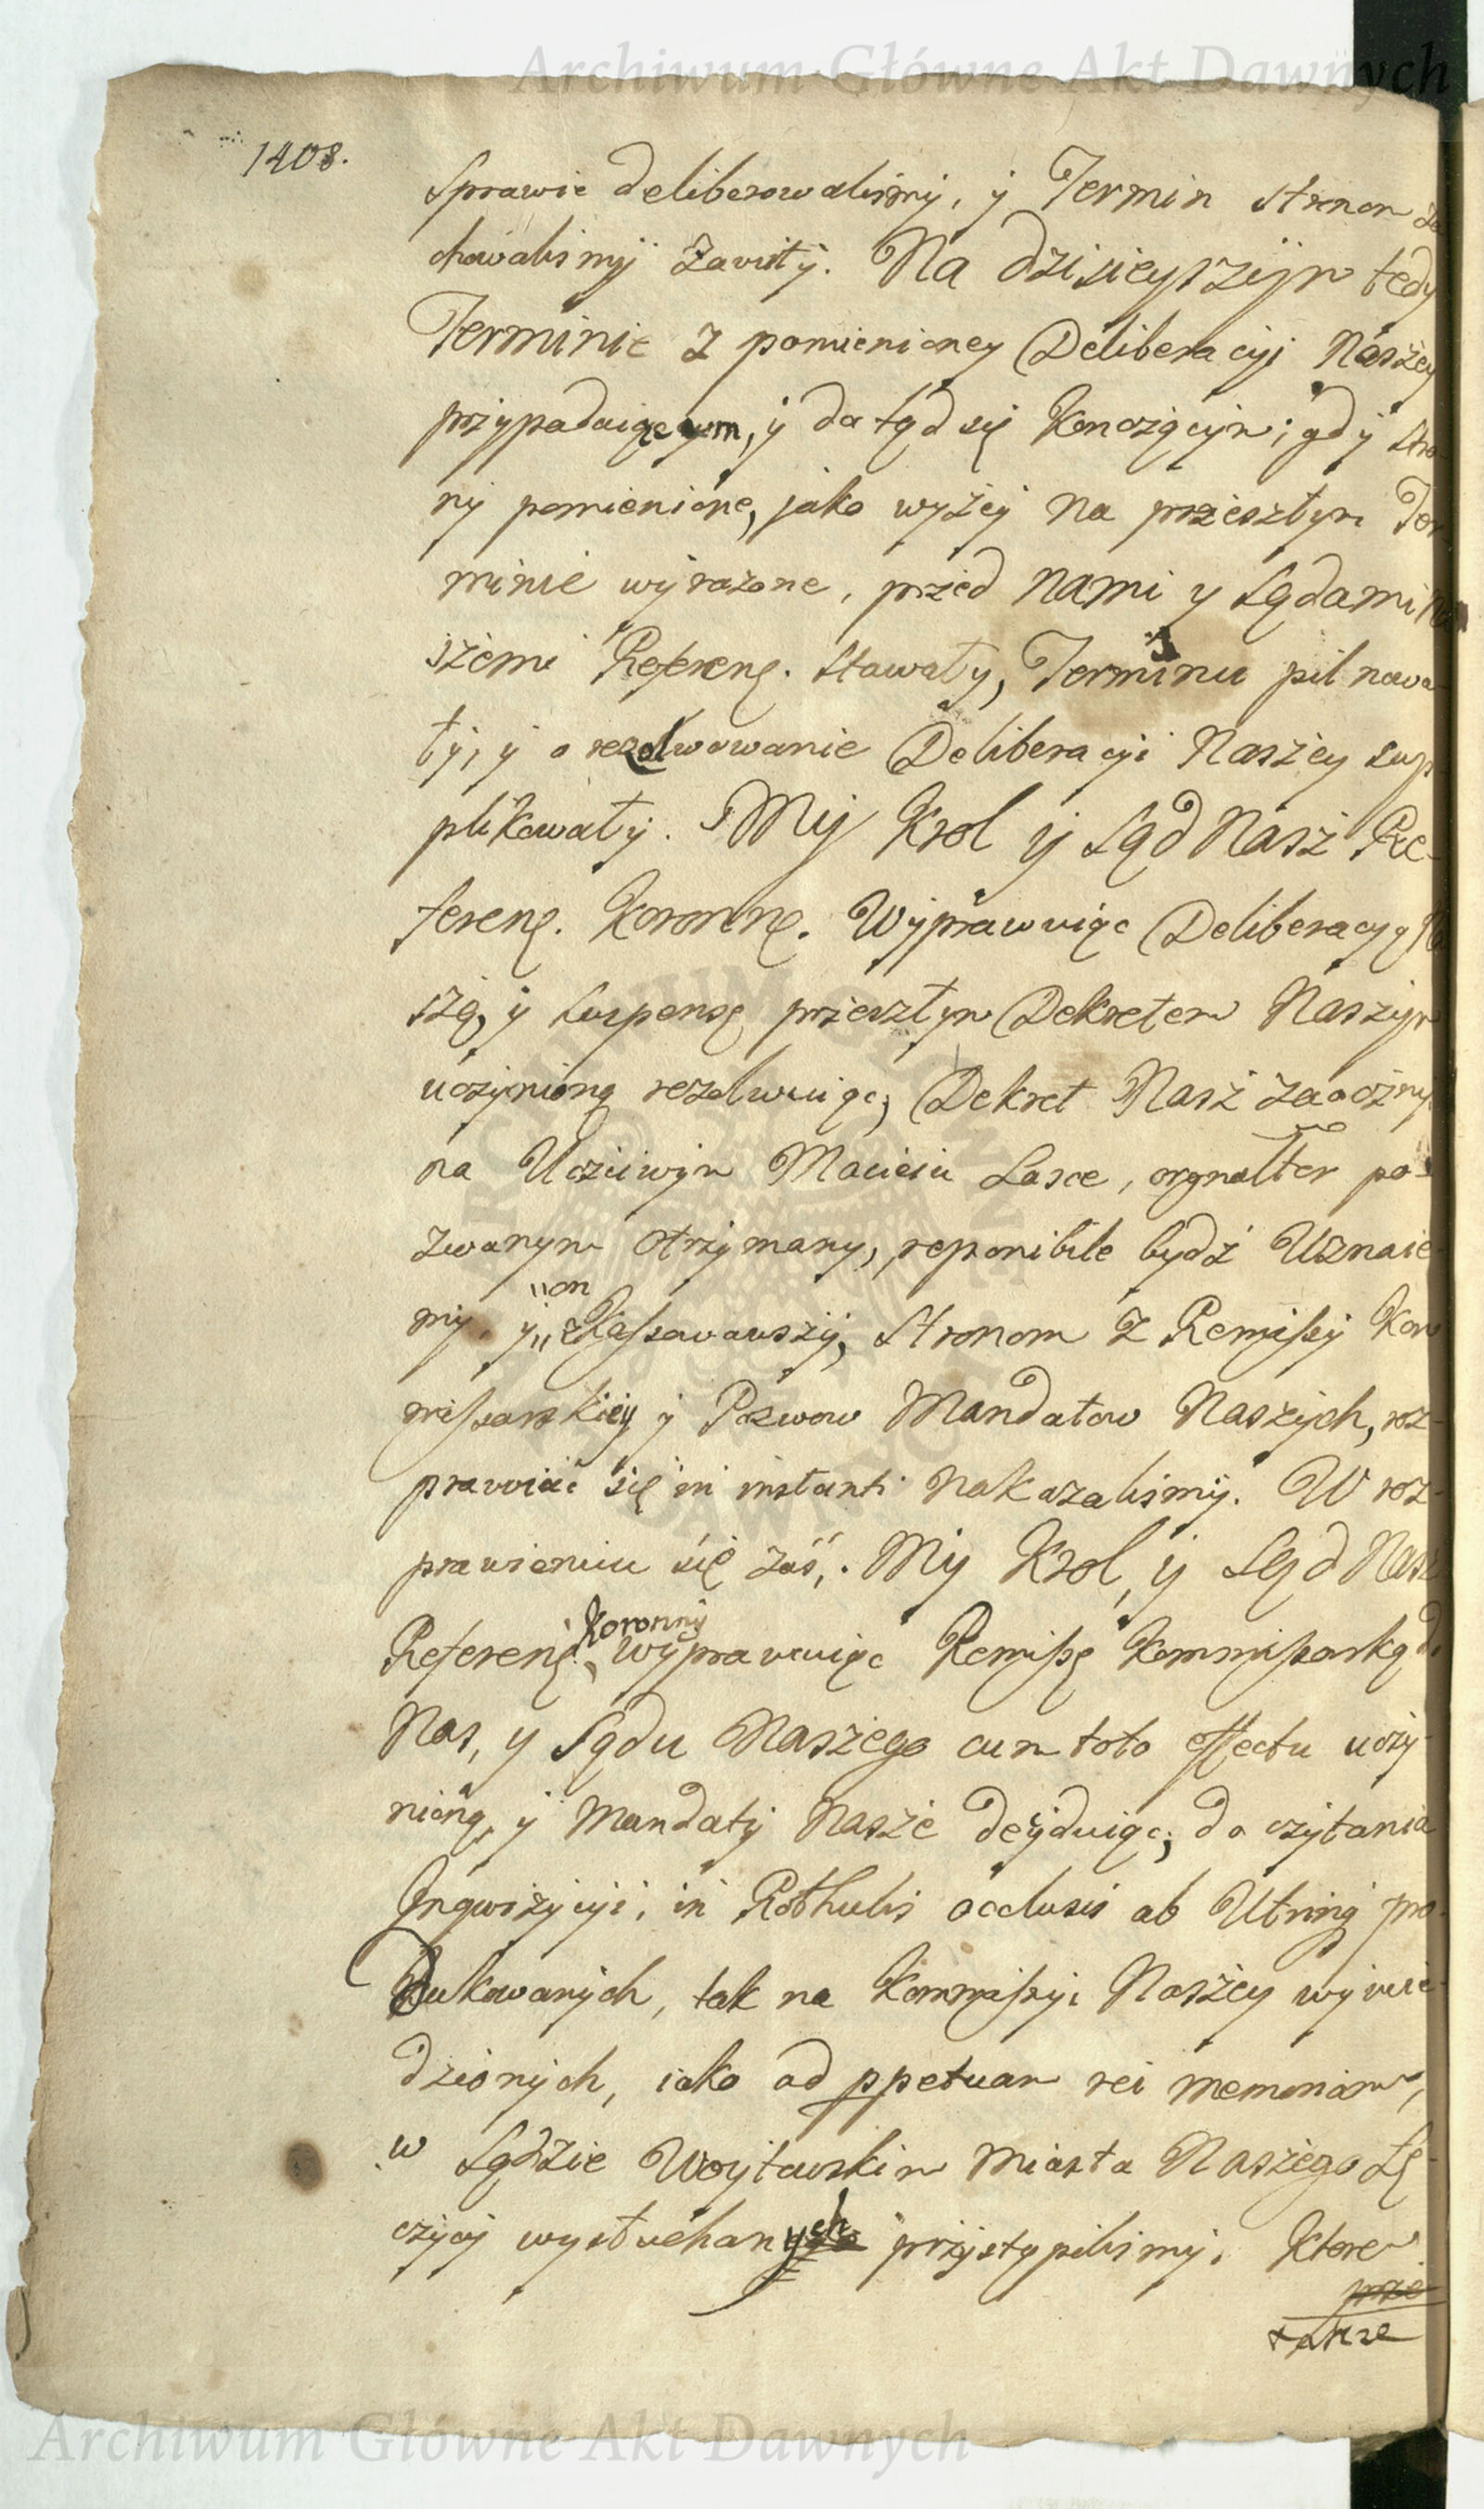 Archiwum Główne Akt Dawnych
1408.
Sprawie deliberowalismy, y Termin Stronom za
chowalismy Zawity. Na dzisieyszym tedy
Terminie z pomienioney Deliberacyi Naszey
przypadaiącym, y dotąd się Konczącym; gdy Stro
ny pomienione, jako wyżey na przeszłym Ter
minie wyrażone, przed Nami y Sądami Na
szemi Referenḍ. Stawały, Terminu pilnowa
ły, y o rezolwowanie Deliberacyi Naszey sup
plikowały. My Krol y Sąd Nasz Re-
ferenḍ. Koronnḍ. Wyprawuiąc Deliberacyą Na
szą, y Suspensę przeszłym Dekretem Naszym
uczynioną rezolwuiąc, Dekret Nasz zaoczny
na Uczciwym Macieiu Lasce, orgnalter po-
zwanym otrzymany, reponibile bydź Uznaie-
my, y on Kassowawszy, Stronom z Remissy Kom
missarskiey y Pozwow Mandatow Naszych, roz-
prawiać się in instanti Nakazalismy. W roz-
prawieniu się zaś, My Krol, y Sąd Nasz
Referenḍ. Koronny Wyprawuiąc Remissę Kommissarską do
Nas, y Sądu Naszego cum toto effectu uczy-
nioną, y Mandaty Nasze deyduiąc, do czytania
Inqwizycyi, in Rothulis occlusis ab Utrinq pro-
dukowanych, tak na Kommissyi Naszey wywie-
dzionych, iako ad ppetuam rei memoriam,
w Sądzie Woytowskim Miasta Naszego Łę-
czycy wysłuchanych przystąpilismy. Ktore
prze
także
Archiwum Główne Akt Dawnych